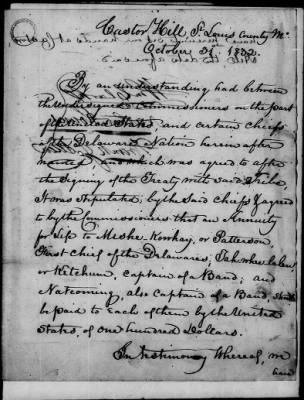 Castor Hill, St. Louis County Mo.
October 31st 1832.
By an understanding had between
the undersigned Commissioners on the part
of the United States, and certain chiefs
of the Delaware Nation herein after
named, and which was agreed to after
the signing of the Treaty with said Tribe,
It was stipulated, by the said chiefs & agreed
to by the Commissioners that an Annuity
for life to Meshe Kowhay, or Patterson,
first chief of the Delawares; Tah whee lalen,
or Ketchum, captain of a Band; and
Natcoming, also captain of a Band, should
be paid to each of them by the United
States, of one hundred Dollars.
In testimony Whereof, we
have